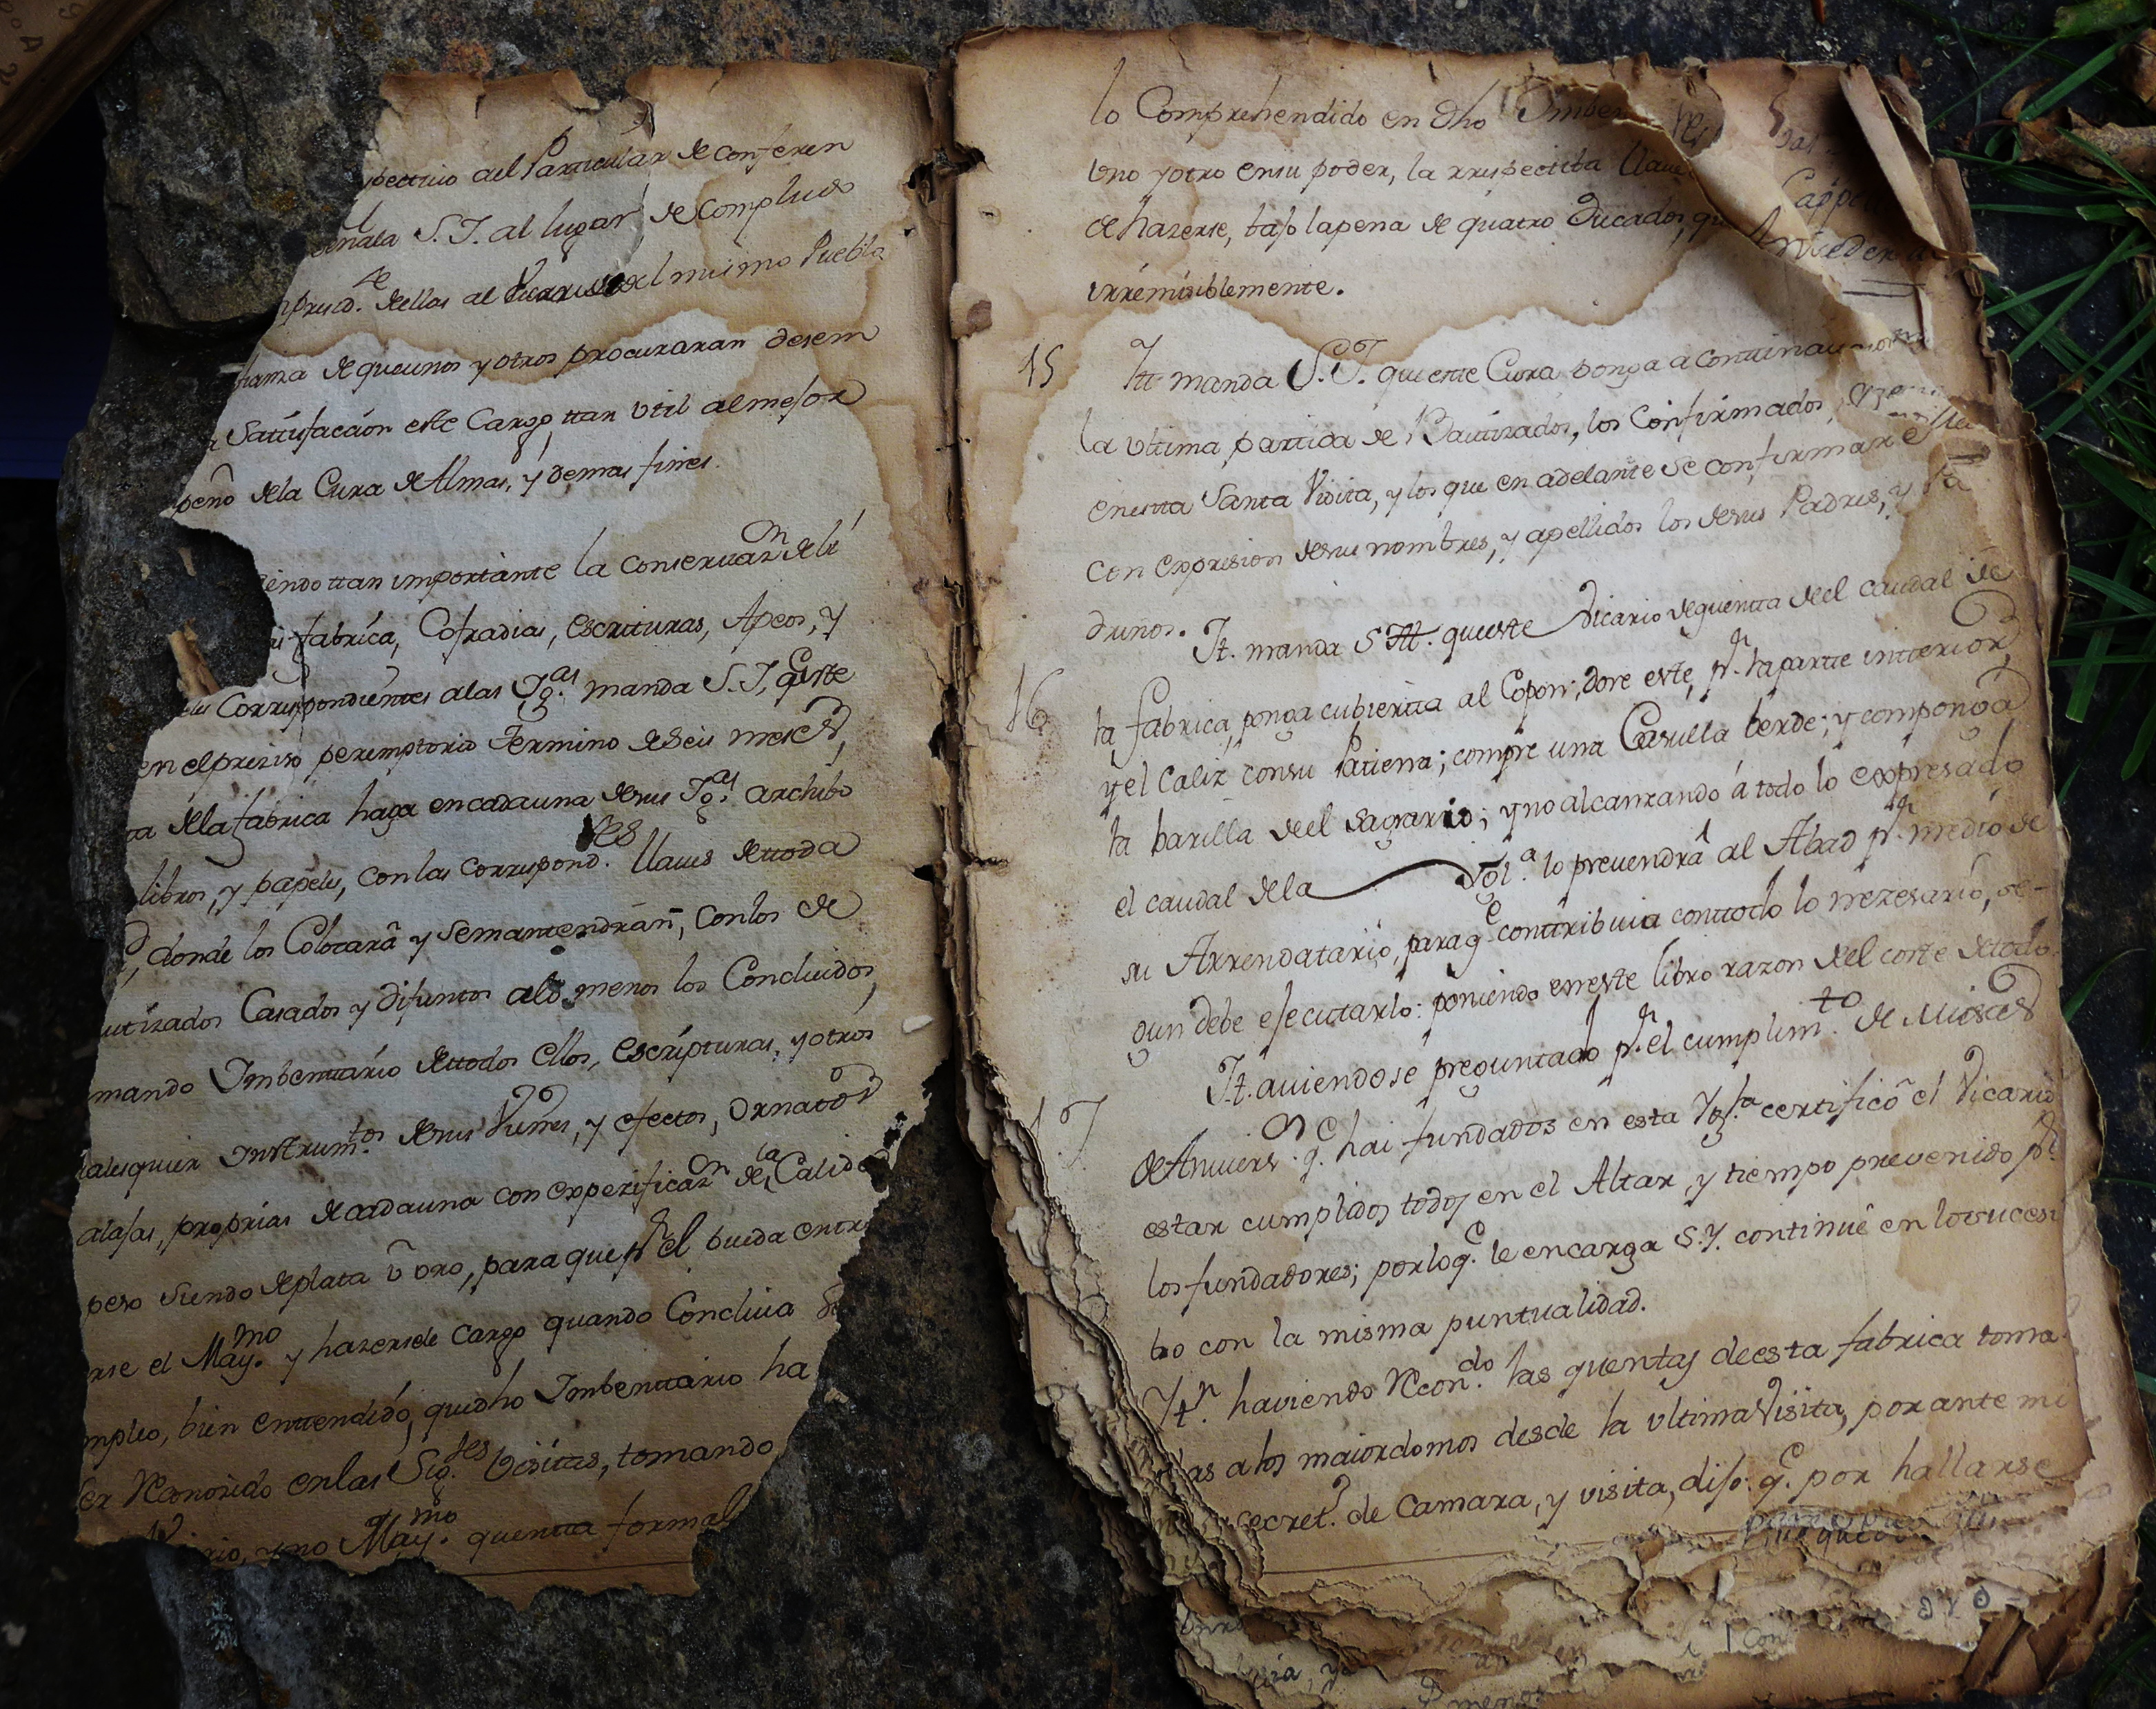 pectivo del Particular de conferen
señala S. I. al lugar de Compludo
de
presid. dellas al Vicario del mismo Pueblo
fianza de que unos y otros procuraran desem
Satisfaccion este Cargo, ttan vtil al mejor
peño de la Cura de Almas, y demas fines.
siendo ttan importante la Conservazon de li
fabrica, Cofradias, escritturas, Apeos, y
Correspondientes a las Igas manda S. I. qe este
en el preziso peremptorio termino de Seis meses,
ta de la fabrica haga en cada una de sus Igas archibo
libros, y papeles, con las correspond.tes llaves de ttoda
donde los Colocarà y se mantendràn, con los de
utizados Casados y difuntos alo menos los Concluidos,
mando Imbenttario de ttodos ellos, escripturas, y otros
alesquier Instrum.tos de sus Vienes, y efectos, Ornatos
alajas, proprias de cada una con expezificazon de la Calidad
peso siendo de plata ù oro, para que pr el pueda entre
arse el May.mo y hazersele cargo quando Concluia
mpleo, bien enttendido, que dho Imbenttario ha
er Reconozido en las Sig.tes Visitas, tomando
rio, y no May.mo quentta formal
lo Comprehendido en dho Imben
Uno y otro en su poder, la rrespectiba llave
de hazerse, bajo la pena de quatro Ducados, qu
irremisiblemente.
15 Itt. manda S. I. que este Cura ponga a continuazion
la vltima partida de Bautizados, los Confirmados
en estta Santa Visita, y los que en adelante se confirmaren
con expresion de sus nombres, y apellidos los de sus Padres, y Pa
drinos.
16 It. manda S. Itt. que este Vicario de quentta del caudal de
la fabrica, ponga cubiertta al Copon; dore este, pr la parte intterior,
y el Caliz con su Patiena; compre una Casulla berde; y componga
la barilla del Sagrario; y no alcanzando á todo lo expresado
el caudal de la Igl.a lo prevendrá al Abad pr medio de
su Arrendatario, para qe conttribuia conttodo lo nezesario, se-
gun debe ejecutarlo: poniendo en este libro razon del coste de todo
17 It. aviendose preguntado pr el cumplim.to de Misas
de Anivers.on qe hai fundados en esta Ygl.a certificò el Vicario
estar cumplidos todos en el Altar, y tiempo prevenido pr
los fundadores; por lo qe le encarga S. Y. continuè en lo sucesi
bo con la misma puntualidad.
Ytn. haviendo Recon.do las quentas de esta fabrica toma
das a los maiordomos desde la vltima Visita, por ante mi
secret.o de Camara, y visita, dijo: qe por hallarse